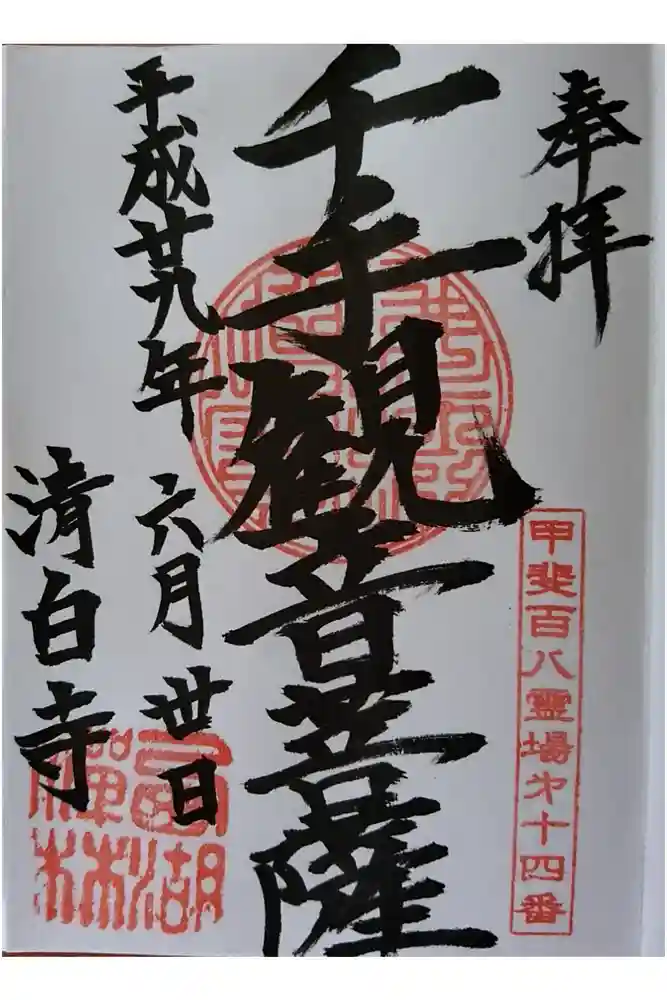 奉拝
甲斐百八霊場第十四番
千手観音菩薩
平成廿九年
六月丗日
清白寺